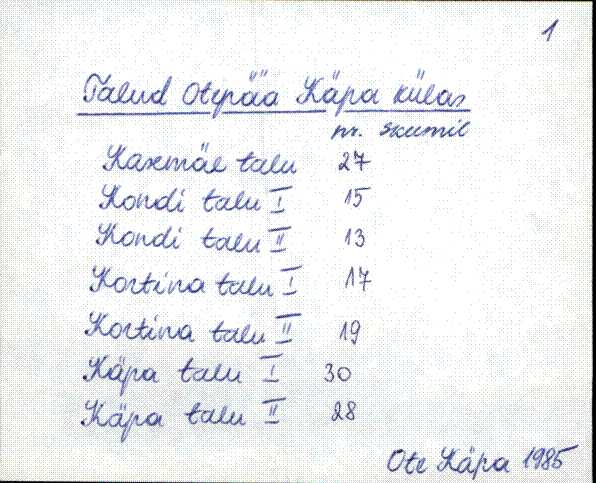 1
Talud Otepää Käpa külas
nr. skeemil
Kaxmäe talu 27
Kondi talu I 15
Kondi talu II 13
Kortina talu I 17
Kortina talu II 19
Käpa talu I 30
Käpa talu II 28
Ote Käpa 1985